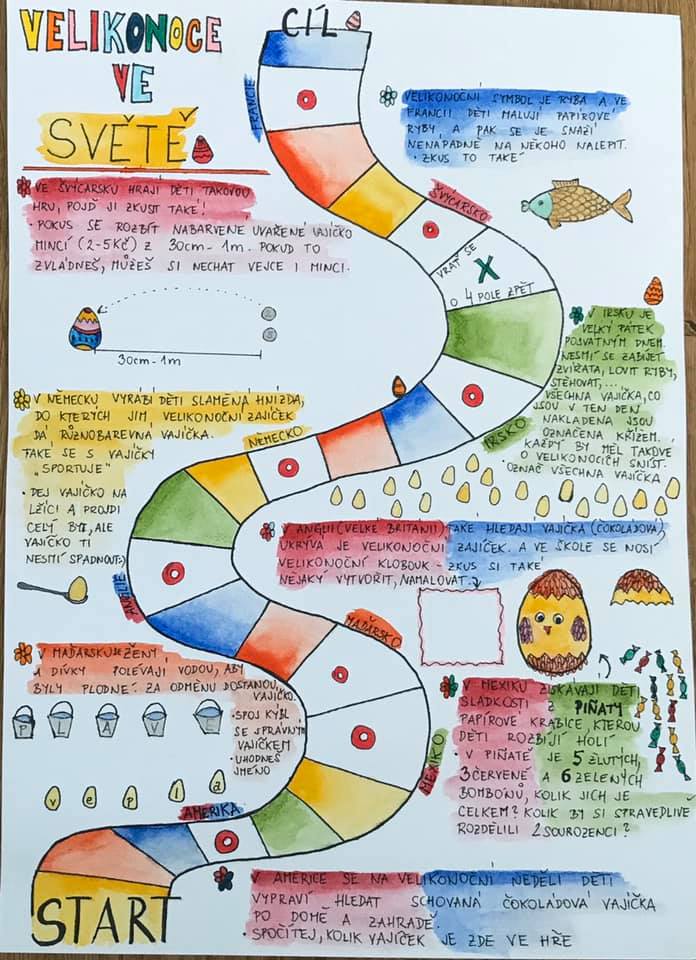 CÍL
VELIKONOCE
VE
SVĚTĚ
FRANCIE
VELIKONOČNÍ SYMBOL JE RYBA A VE
FRANCII DĚTI MALUJÍ PAPÍROVÉ
RYBY, A PAK SE JE SNAŽÍ
NENÁPADNĚ NA NĚKOHO NALEPIT.
· ZKUS TO TAKÉ
VE ŠVÝCARSKU HRAJÍ DĚTI TAKOVOU
HRU, POJĎ JI ZKUSIT TAKÉ!
· POKUS SE ROZBÍT NABARVENÉ UVAŘENÉ VAJÍČKO
MINCÍ (2-5KČ) Z 30cm - 1m. POKUD TO
ZVLÁDNEŠ, MŮŽEŠ SI NECHAT VEJCE I MINCI.
30cm - 1m
ŠVÝCARSKO
VRAŤ SE
X
O 4 POLE ZPĚT
V IRSKU JE
VELKÝ PÁTEK
POSVÁTNÝM DNEM.
NESMÍ SE ZABÍJET
ZVÍŘATA, LOVIT RYBY,
STĚHOVAT,...
VŠECHNA VAJÍČKA, CO
JSOU V TEN DEN
NAKLADENA JSOU
OZNAČENA KŘÍŽEM.
KAŽDÝ BY MĚL TAKOVÉ
O VELIKONOCÍCH SNÍST.
· OZNAČ VŠECHNA VAJÍČKA
IRSKO
V NĚMECKU VYRÁBÍ DĚTI SLAMĚNÁ HNÍZDA,
DO KTERÝCH JIM, VELIKONOČNÍ ZAJÍČEK
DÁ RŮZNOBAREVNÁ VAJÍČKA.
TAKÉ SE S VAJÍČKY
„SPORTUJE"
· DEJ VAJÍČKO NA
LŽÍCI A PROJDI
CELÝ BYT, ALE
VAJÍČKO TI
NESMÍ SPADNOUT:)
NĚMECKO
V ANGLII (VELKÉ BRITANII), TAKÉ HLEDAJÍ VAJÍČKA (ČOKOLÁDOVÁ),
UKRÝVÁ JE VELIKONOČNÍ ZAJÍČEK. A VE ŠKOLE SE NOSÍ
VELIKONOČNÍ KLOBOUK - ZKUS SI TAKÉ
NĚJAKÝ VYTVOŘIT, NAMALOVAT.
ANGLIE
MAĎARSKO
V MAĎARSKU SE ŽENY
A DÍVKY POLÉVAJÍ VODOU, ABY
BYLY PLODNÉ. ZA ODMĚNU DOSTANOU
VAJÍČKO.
· SPOJ KÝBL
SE SPRÁVNÝM
VAJÍČKEM
· UHODNEŠ
JMÉNO
P L A V
v e p l a
MEXIKO
V MEXIKU ZÍSKÁVAJÍ DĚTI
SLADKOSTI Z PIŇATY
PAPÍROVÉ KRABICE, KTEROU
DĚTI ROZBÍJÍ HOLÍ
· V PIŇATĚ JE 5 ŽLUTÝCH,
3 ČERVENÉ A 6 ZELENÝCH
BOMBÓNŮ, KOLIK JICH JE
CELKEM? KOLIK BY SI SPRAVEDLIVĚ
ROZDĚLILI 2 SOUROZENCI?
AMERIKA
V AMERICE SE NA VELIKONOČNÍ NEDĚLI DĚTI
VYPRAVÍ HLEDAT SCHOVANÁ ČOKOLÁDOVÁ VAJÍČKA
PO DOMĚ A ZAHRADĚ.
· SPOČÍTEJ, KOLIK VAJÍČEK JE ZDE VE HŘE
START